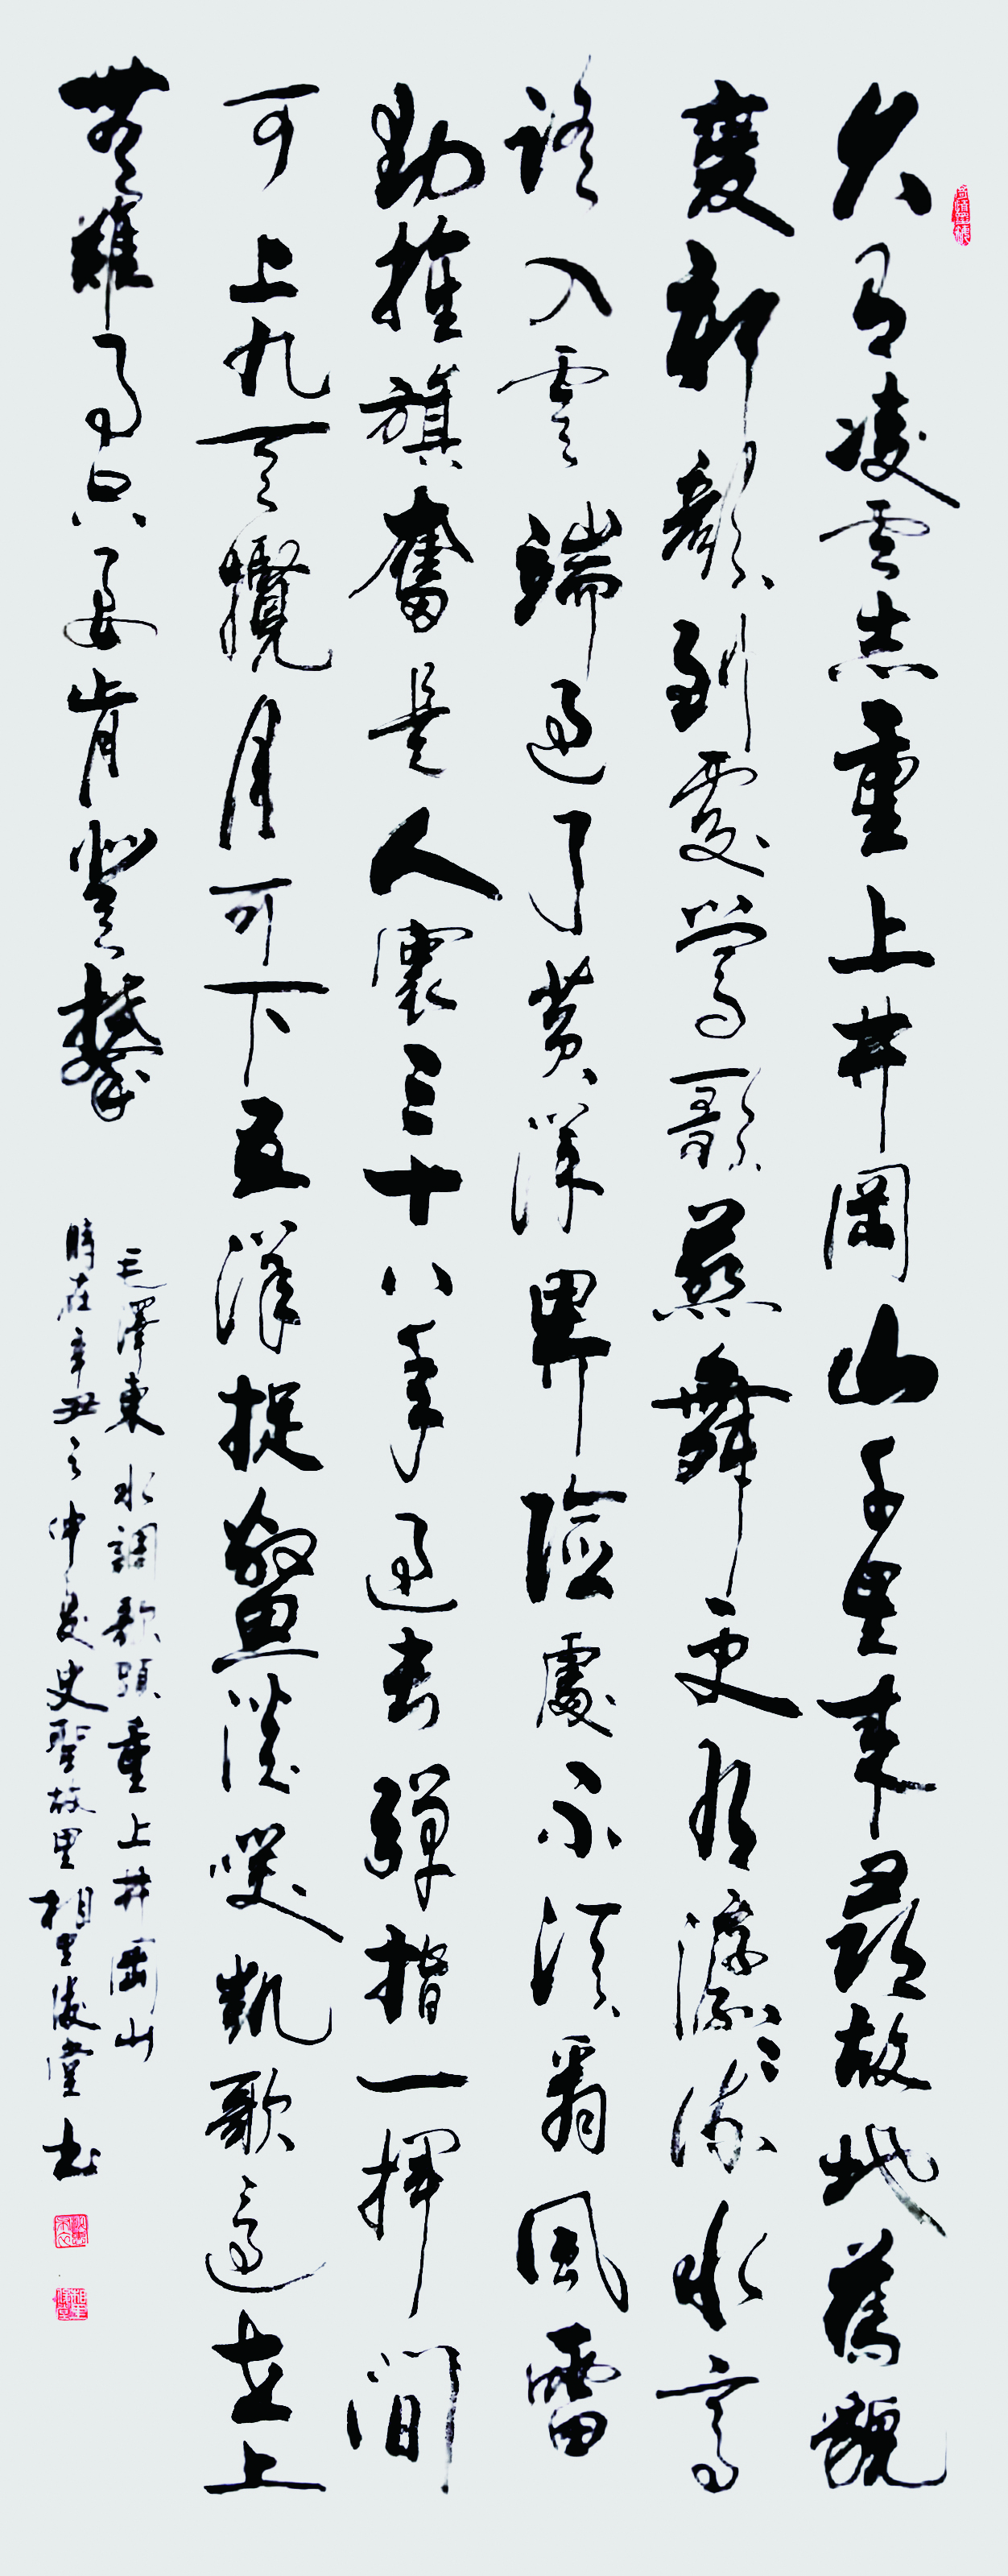 久有凌雲志重上井岡山千里來尋故地舊貌
變新顏到處鶯歌燕舞更有潺〻流水高
路入雲端過了黄洋界險處不須看風雷
動旌旗奮是人寰三十八年過去彈指一揮間
可上九天攬月可下五洋捉鱉談笑凱歌還世上
無難事只要肯登攀
毛澤東水調歌頭重上井岡山
時在辛丑之仲夏史聖故里相里堂书